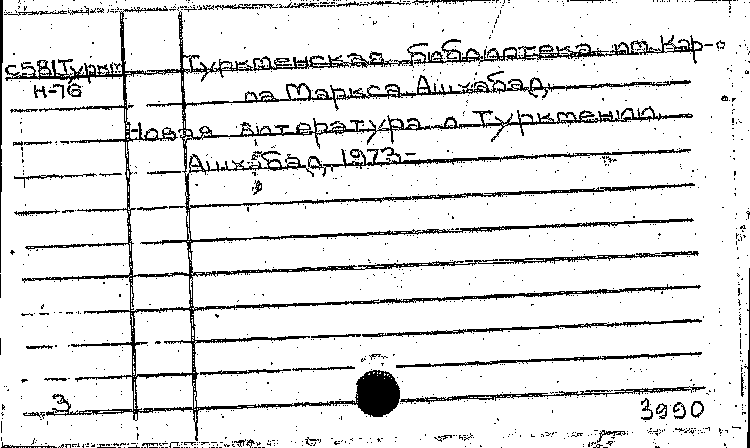 С58(Туркм Туркменская библиотека им. Кар-
Н-76 ла Маркса. Ашхабад.
Новая литература о Туркмении.
Ашхабад, 1973-
3
3990